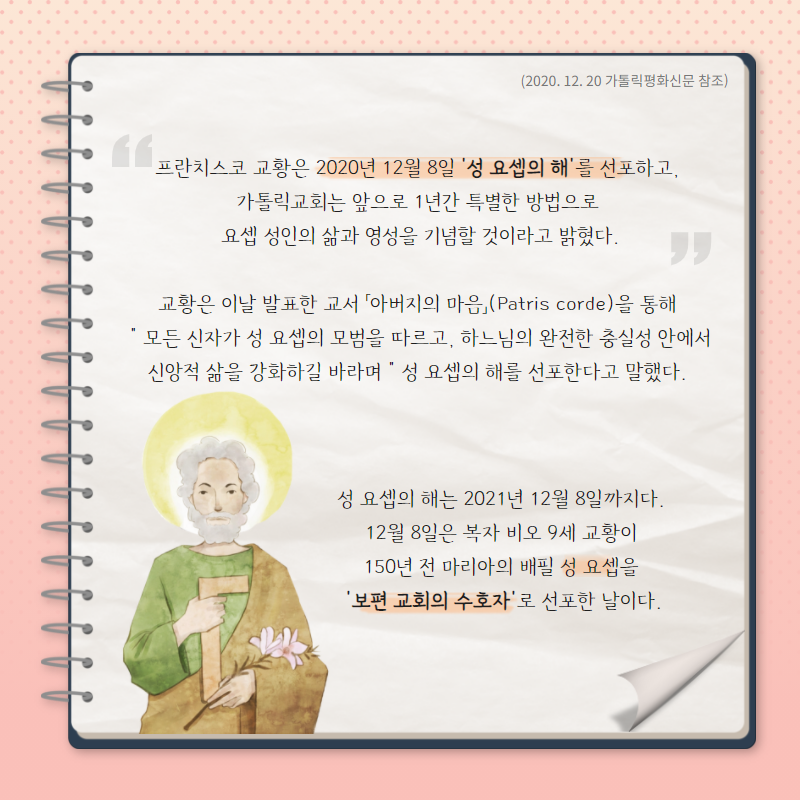 (2020. 12. 20 가톨릭평화신문 참조)
“ 프란치스코 교황은 2020년 12월 8일 '성 요셉의 해'를 선포하고,
가톨릭교회는 앞으로 1년간 특별한 방법으로
요셉 성인의 삶과 영성을 기념할 것이라고 밝혔다. ”
교황은 이날 발표한 교서 「아버지의 마음」(Patris corde)을 통해
" 모든 신자가 성 요셉의 모범을 따르고, 하느님의 완전한 충실성 안에서
신앙적 삶을 강화하길 바라며 " 성 요셉의 해를 선포한다고 말했다.
성 요셉의 해는 2021년 12월 8일까지다.
12월 8일은 복자 비오 9세 교황이
150년 전 마리아의 배필 성 요셉을
'보편 교회의 수호자'로 선포한 날이다.